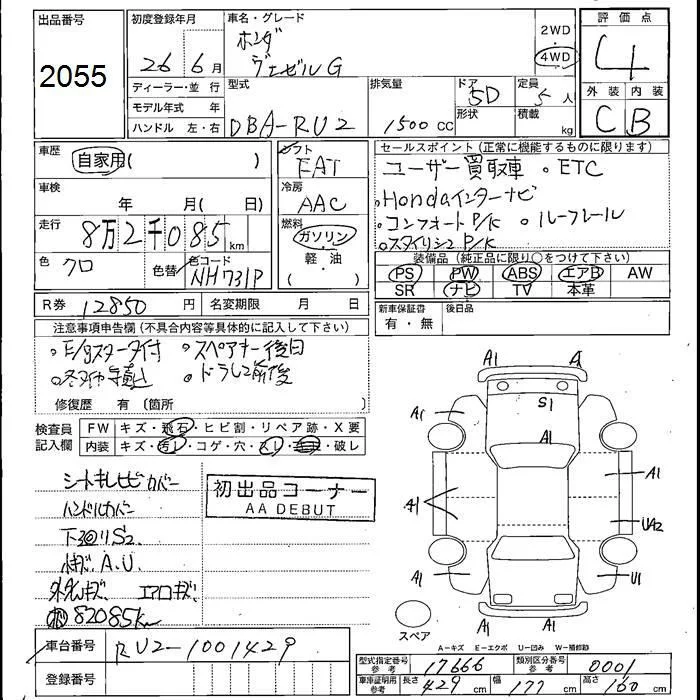 出品番号
2055
初度登録年月
26年 6月
ディーラー・並行
モデル年式 年
ハンドル 左・右
車名・グレード
ホンダ
ヴェゼルG
2WD
4WD
型式
DBA-RU2
排気量
1500 cc
ドア
5D
形状
定員
5人
積載
kg
評価点
4
外装 内装
C B
車歴
自家用( )
車検
年 月( 日)
走行
8万2千085 km
色
クロ
色替
色コード
NH731P
シフト
FAT
冷房
AAC
燃料
ガソリン
軽・油
( )
セールスポイント(正常に機能するものに限ります)
ユーザー買取車 。ETC
。Hondaインターナビ
。コンフォートP/K 。ルーフレール
。スタイリッシュP/K
装備品(純正品に限り○をつけて下さい)
PS PW ABS エアB AW
SR ナビ TV 本革
R券 12850 円 名変期限 月 日
新車保証書
有・無
後日品
注意事項申告欄(不具合内容等具体的に記入して下さい)
。E/gスターター付 。スペアキー後日
。冬タイヤ積込 。ドラレコ前後
修復歴 有(箇所 )
検査員
記入欄
FW キズ・飛石・ヒビ割・リペア跡・X要
内装 キズ・汚レ・コゲ・穴・スレ・・破レ
シートキレヒビ カバー
ハンドルカバー
下回リS2
小キズ A.U
外光キズ エアロキズ
82085km
初出品コーナー
AA DEBUT
A1 A1
A1 S1
A1
A1 A1
UA2
A1 U1
A1 A1
スペア
A-キズ E-エクボ U-凹み W-補修跡
車台番号 RU2-1001429
登録番号
型式指定番号
参考
17666
類別区分番号
参考
0001
車庫証明用
参考
長さ 429 cm 幅 177 cm 高さ 160 cm